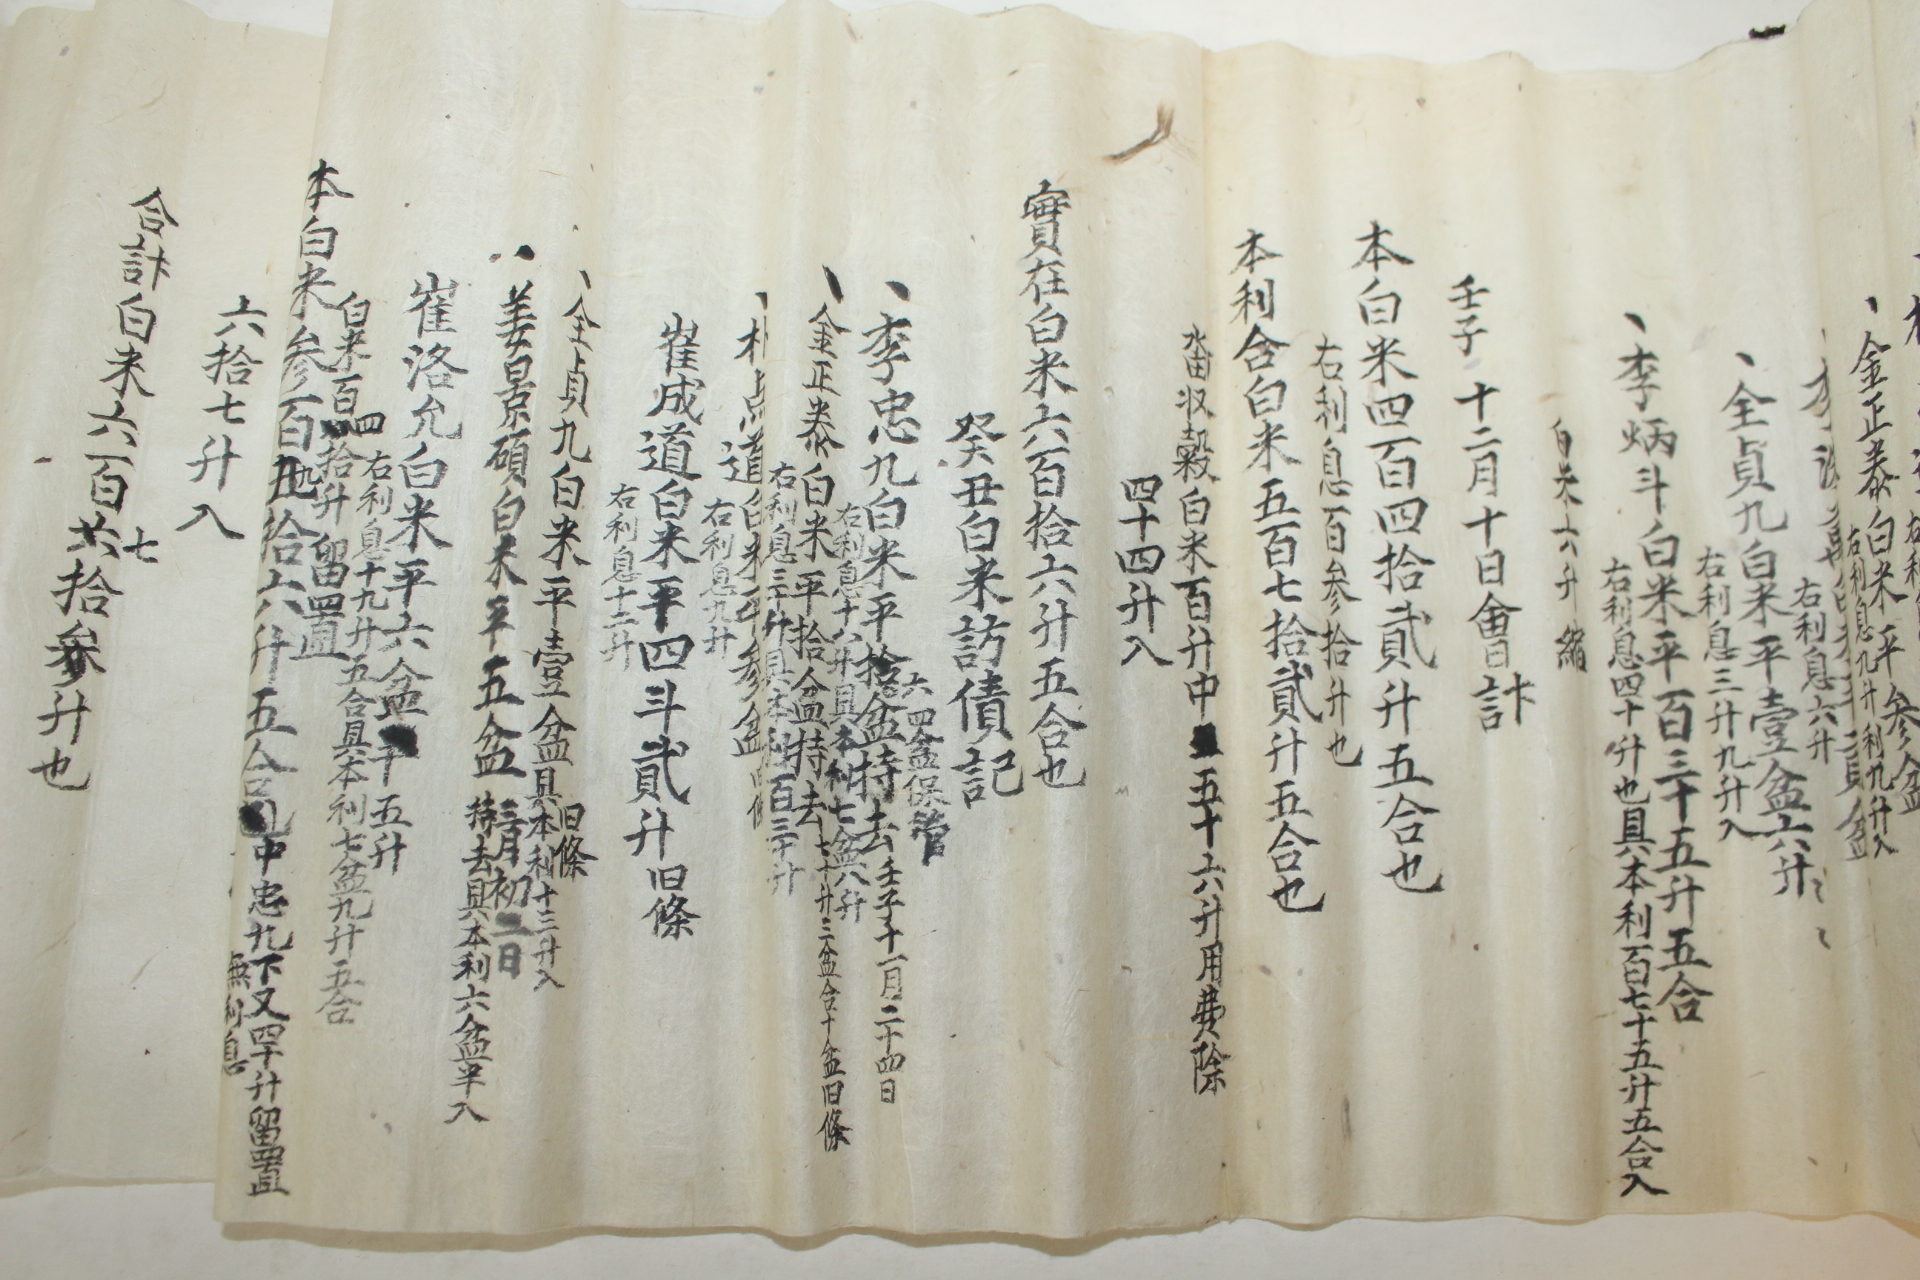 金正泰白米平參盆
右利息九升利九升入
右利息六升
、全貞九白米平壹盆六升
右利息三升九升入
、李炳斗白米平百三十五升五合
右利息四十升也具本利百七十五升五合入
白米六升縮
壬子十二月十日會計
本白米四百四拾貳升五合也
右利息百參拾升也
本利合白米五百七拾貳升五合也
畓收穀白米百升中五十六升用費除
四十四升入
實在白米六百拾六升五合也
癸丑白米訪債記
六四盆保管
、李忠九白米平拾盆持去壬子十一月二十四日
右利息十八升具本利七盆八升
、金正泰白米平拾盆持去七十升三盆合十盆旧條
右利息三升具本利百三十升
、朴点道白米平參盆旧條
右利息九升
崔成道白米平四斗貳升旧條
右利息十三升
、全貞九白米平壹盆旧條
具本利十三升入
姜景碩白米平五盆三月初三日持去具本利六盆半入
崔洛允白米平六盆平五升
右利息十九升五合具本利七盆九升五合
白米百四拾升留置
本白米參百四拾六升五合中忠九下又四十升留置
無利息
六拾七升入
合計白米六百七拾參升也